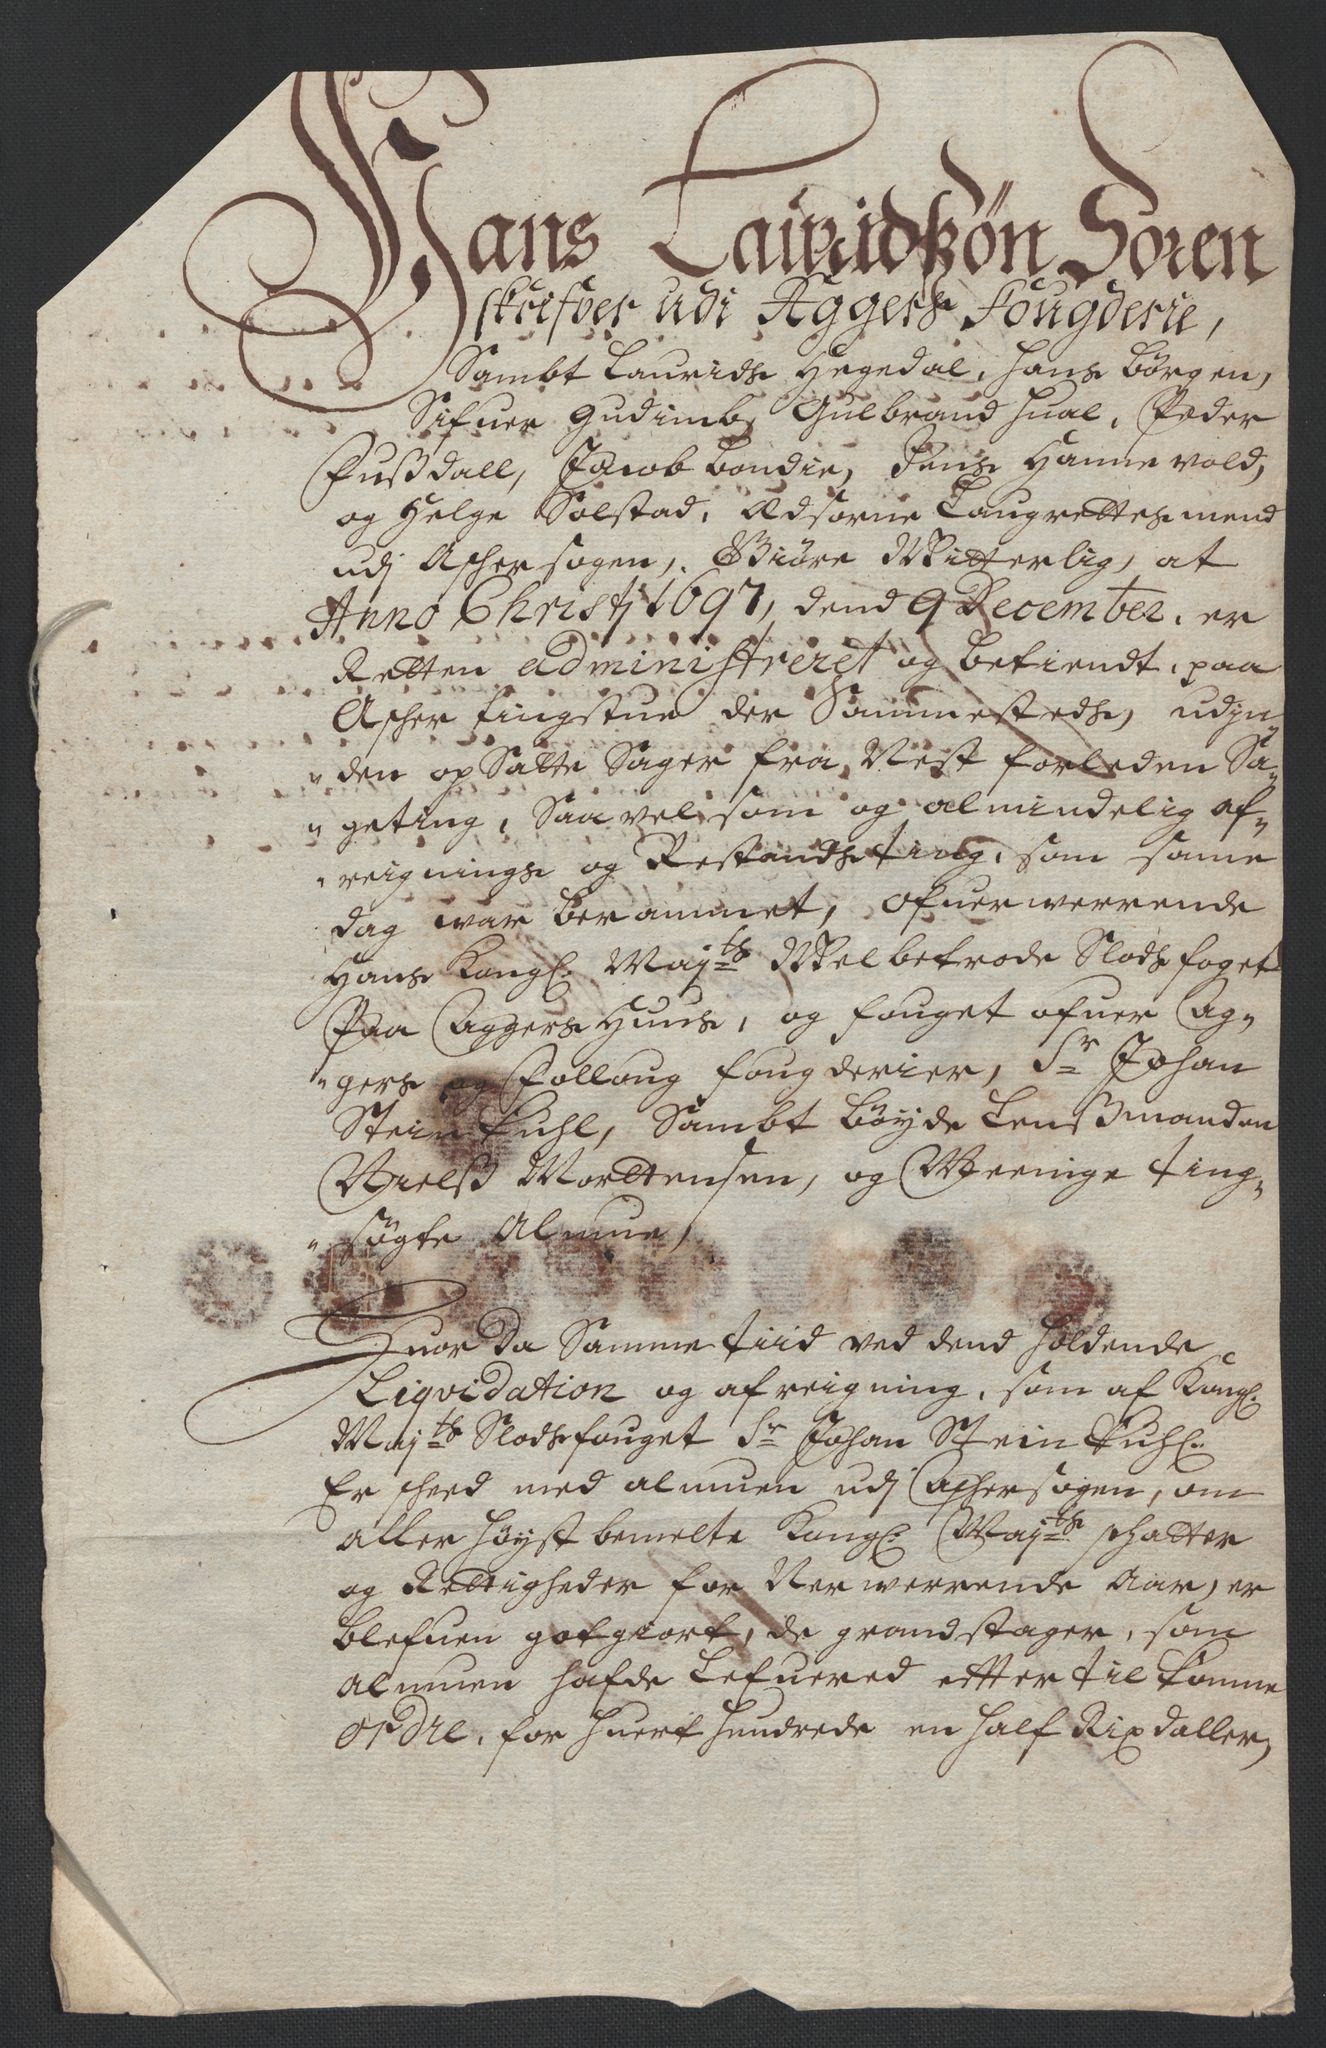 Hans Lauridßön Soren
skrifver udi Aggers Fougderie,
Sambt Laurids Hegedal, Hans Börgen,
Sifuer Gudimb, Gulbrand Hual, Peder
Fußdall, Jacob Bondie, Jens Hannevold,
og Helge Solstad, Edsorne Laugrettesmend
udj Asker sogen, Giöre Witterlig, at
Anno Christj 1697, dend 9 December, er
Retten administreret og betiendt, paa
Asker tingstue der Sammesteds, udjn„
„den op Satte Sager fra Nest forleden Sa„
„geting, Saavel som og almindelig af„
„reignings og Restands ting, som same
dag war berammet, Ofuerwerrende
Hans Kongl. Maj:ts Welbetrode Slodsfoget
Paa Aggers Huus, og fouget ofuer Ag„
„gers og Folloug fougderier, Sr Johan
Stein Kuhl, Sambt böyde Lensßmanden
Nielß Morttensen, og Meenige ting„
„søgte Almue,
Huor da Samme tiid ved dend holdende
Liqvidation og afreigning, som af Kongl.
Maj:ts Slodsfouget Sr Johan Stein Kuhl.
Er scheed med almuen udj Askersogen, om
aller höyst bemelte Kongl. Maj:ts schatter
og Rettigheder for Nerwerrende Aar, er
blefuen gotgiort, de grandstager, som
almuen hafde Lefuered etter til komne
ordre, for huert hundrede en half Rixdaller,